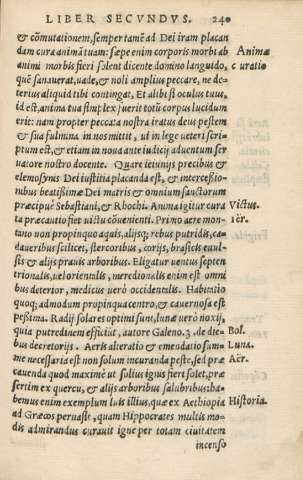 LIBER SECVNDVS. 240
& cõmutationem, semper tamẽ ad Dei iram placan
dam cura animã tuam: sæpe enim corporis morbi ab Animæ
animi morbis fieri solent dicente domino languido, curatio
quẽ sanauerat, uade, & noli amplius peccare, ne de-
terius aliquid tibi contingat, Et alibi si oculus tuus,
id est, anima tua simplex fuerit totũ corpus lucidum
erit: nam propter peccata nostra iratus deus pestem
& sua fulmina in nos mittit, ut in lege ueteri scri-
ptum est, & etiam in noua ante iudicij aduentum ser
uatore nostro docente. Quare ieiunijs precibus &
elemosynis Dei iustitia placanda est, & intercessio-
nibus beatissimæ Dei matris & omnium sanctorum
præcipuè Sebastiani, & Rhochi. Anima igitur cura Victus.
ta præcautio fiet uictu cõuenienti. Primo aere mon- 1er.
tano non propinquo aquis, alijsq; rebus putridis, ca-
daueribus scilicet, stercoribus, corijs, brasicis euul-
sis & alijs prauis arboribus. Eligatur uentus septen
trionalis, uel orientalis, meredionalis enim est omni
bus deterior, medicus uerò occidentalis. Habitatio
quoq; admodum propinqua centro, & cauernosa est
pessima. Radij solares optimi sunt, lunæ uerò noxij,
quia putredinem efficiut, autore Galeno. 3. de die- Sol.
bus decretorijs. Aeris alteratio & emẽdatio sum- Luna.
me necessaria est non solum incuranda peste, sed præ Aër.
cauenda quod maximè ut solius ignis fieri solet, præ
sertim ex quercu, & alijs arboribus salubribus: ha-
bemus enim exemplum luis illius, quæ ex Aethiopia Historia.
ad Græcos peruasit, quam Hippocrates multis mo-
dis admirandus curauit igne per totam ciuitatem
incenso